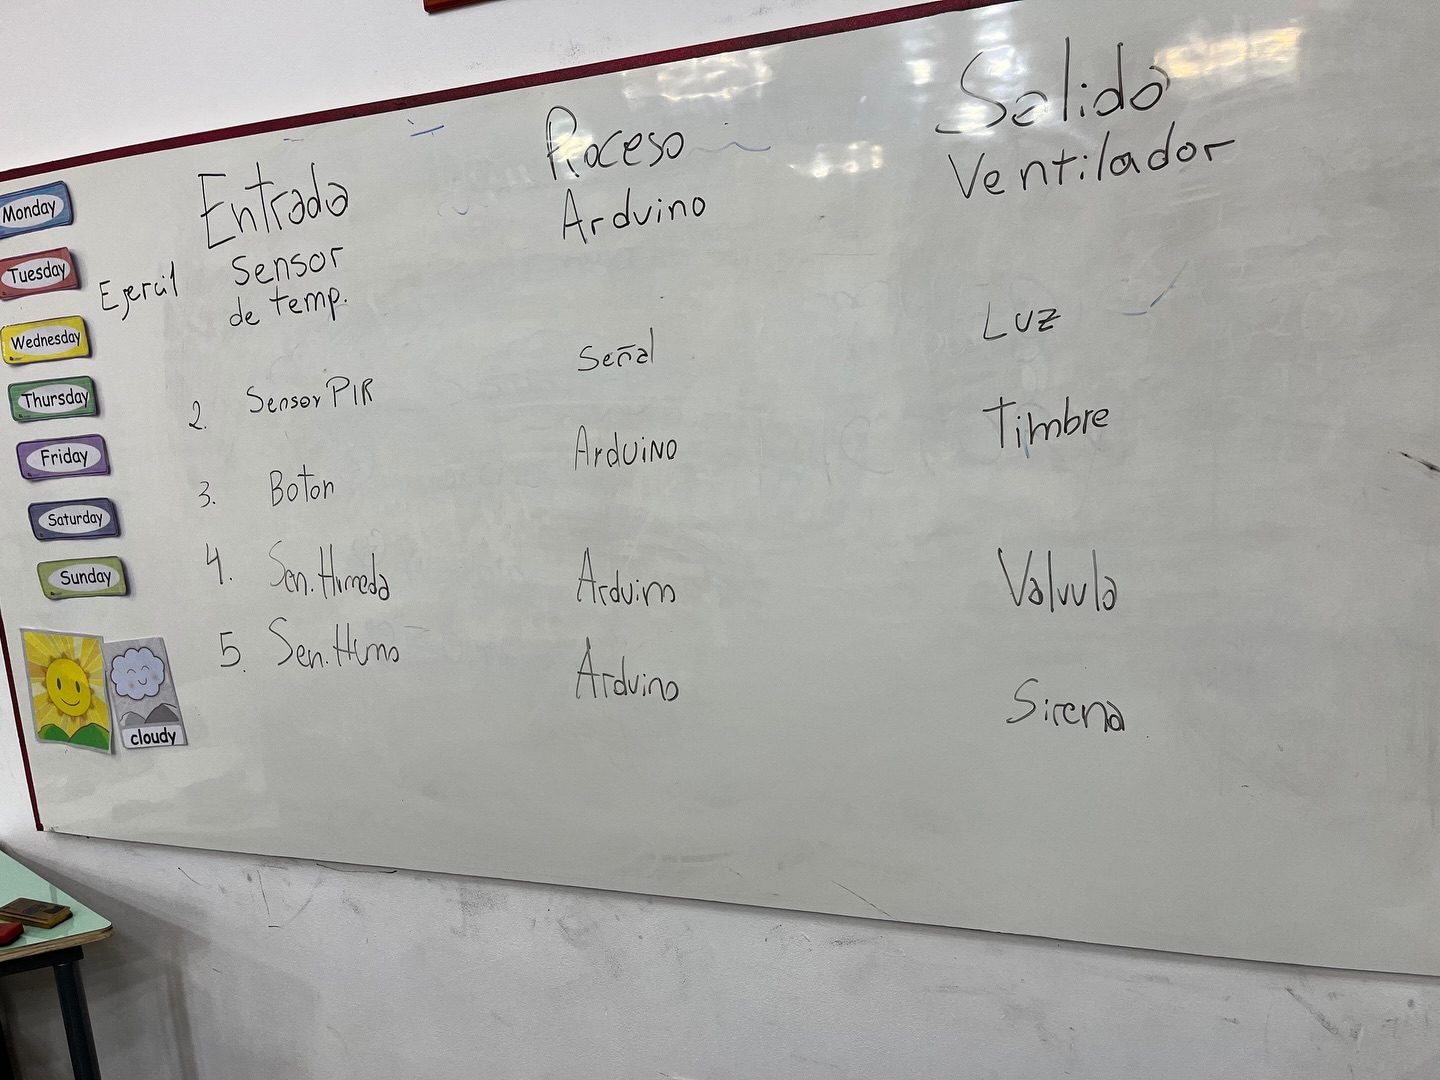 Entrada Proceso Salida
Ejercil sensor de temp. Arduino Ventilador
2. Sensor PIR Señal Luz
3. Boton Arduino Timbre
4. Sen. Humeda Arduino Valvula
5. Sen. Humo Arduino Sirena
Monday
Tuesday
Wednesday
Thursday
Friday
Saturday
Sunday
cloudy